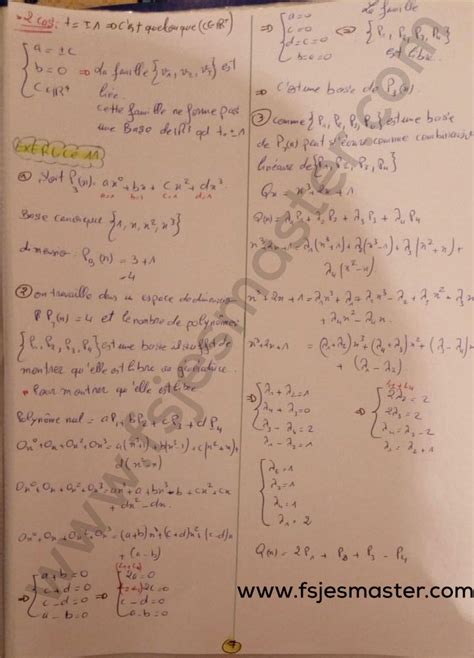 * 2 cas: t = ±1 ⇒ C est quelconque (C∈ℝ*)
{ a = ±c
b = 0 ⇒ La famille {v₁, v₂, v₃} est
C∈ℝ* liée.
cette famille ne forme pas
une Base de ℝ³ qd t = ±1
EXERCICE 11
① Soit P₃(x) = ax⁰ + bx + cx² + dx³
Base canonique {1, x, x², x³}
dimension: P₃(x) = 3+1
= 4
② on travaille dans un espace de dimension
P₃(x) = 4 et le nombre de polynômes
{P₁, P₂, P₃, P₄} est une base il suffit de
montrer qu'elle est libre ou génératrice
• Pour montrer qu'elle est libre
Polynôme nul = aP₁ + bP₂ + cP₃ + dP₄
+ d(x²-x)
+ dx² - dx
0x⁰+0x+0x²+0x³ = (a+b)x³+(c+d)x²+(c-d)x
+ (a-b)
⇒ { a+b=0
c+d=0
c-d=0
a-b=0
⇒ { 2a=0
2c=0
c-d=0
a-b=0
⇒ { a=0
c=0
d=c=0
b=a=0
La famille
⇔ {P₁, P₂, P₃, P₄}
est libre.
⇒ C'est une base de P₃(x)
③ comme {P₁, P₂, P₃, P₄} est une base
de P₃(x) peut s'écrire comme combinaison
linéaire de {P₁, P₂, P₃, P₄}
Qx = x³+2x+1
Q(x) = λ₁P₁ + λ₂P₂ + λ₃P₃ + λ₄P₄
x³+2x+1 = λ₁(x³+1)+λ₂(x³-1)+λ₃(x²+x)+
λ₄(x²-x)
x³+2x+1 = λ₁x³+λ₁+λ₂x³-λ₂+λ₃x²+λ₃x
+ λ₄x²-λ₄x.
x³+2x+1 = (λ₁+λ₂)x³+(λ₄+λ₃)x²+(λ₃-λ₄)x
+ (λ₁-λ₂)
⇒ { λ₁+λ₂=1
λ₃+λ₄=0
λ₃-λ₄=2
λ₁-λ₂=1
⇒ { 2λ₁=2
2λ₃=2
λ₃-λ₄=2
Q(x) = 2P₁ + P₂ + P₃ - P₄
www.fsjesmaster.com
www.fsjesmaster.com
9